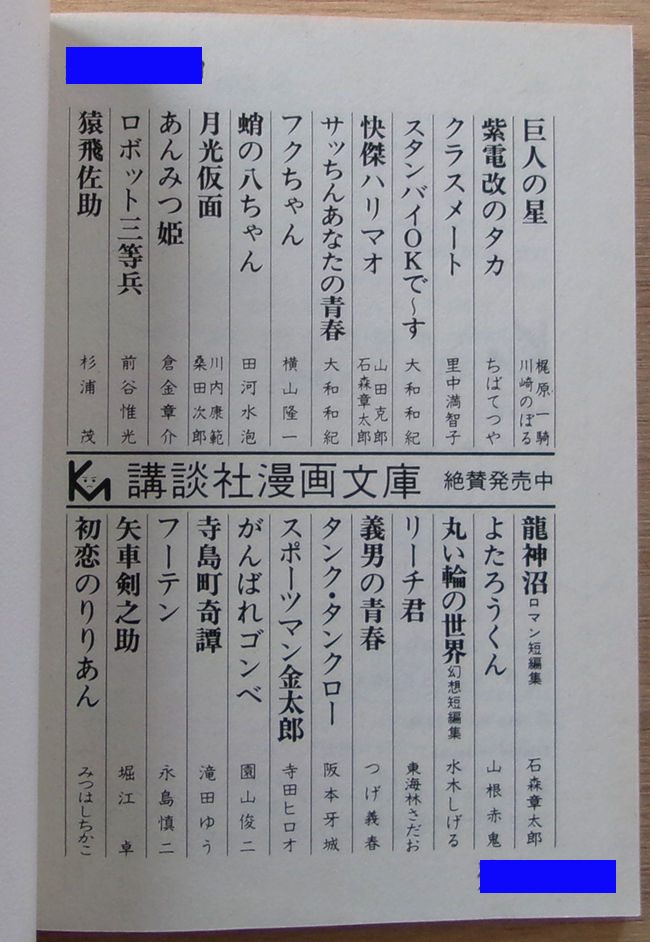 巨人の星 梶原一騎 川崎のぼる
紫電改のタカ ちばてつや
クラスメート 里中満智子
スタンバイOKで〜す 大和和紀
快傑ハリマオ 山田克郎 石森章太郎
サッちんあなたの青春 大和和紀
フクちゃん 横山隆一
蛸の八ちゃん 田河水泡
月光仮面 川内康範 桑田次郎
あんみつ姫 倉金章介
ロボット三等兵 前谷惟光
猿飛佐助 杉浦茂
KM 講談社漫画文庫 絶賛発売中
龍神沼 ロマン短編集 石森章太郎
よたろうくん 山根赤鬼
丸い輪の世界 幻想短編集 水木しげる
リーチ君 東海林さだお
義男の青春 つげ義春
タンク・タンクロー 阪本牙城
スポーツマン金太郎 寺田ヒロオ
がんばれゴンベ 園山俊二
寺島町奇譚 滝田ゆう
フーテン 永島慎二
矢車剣之助 堀江卓
初恋のりりあん みつはしちかこ